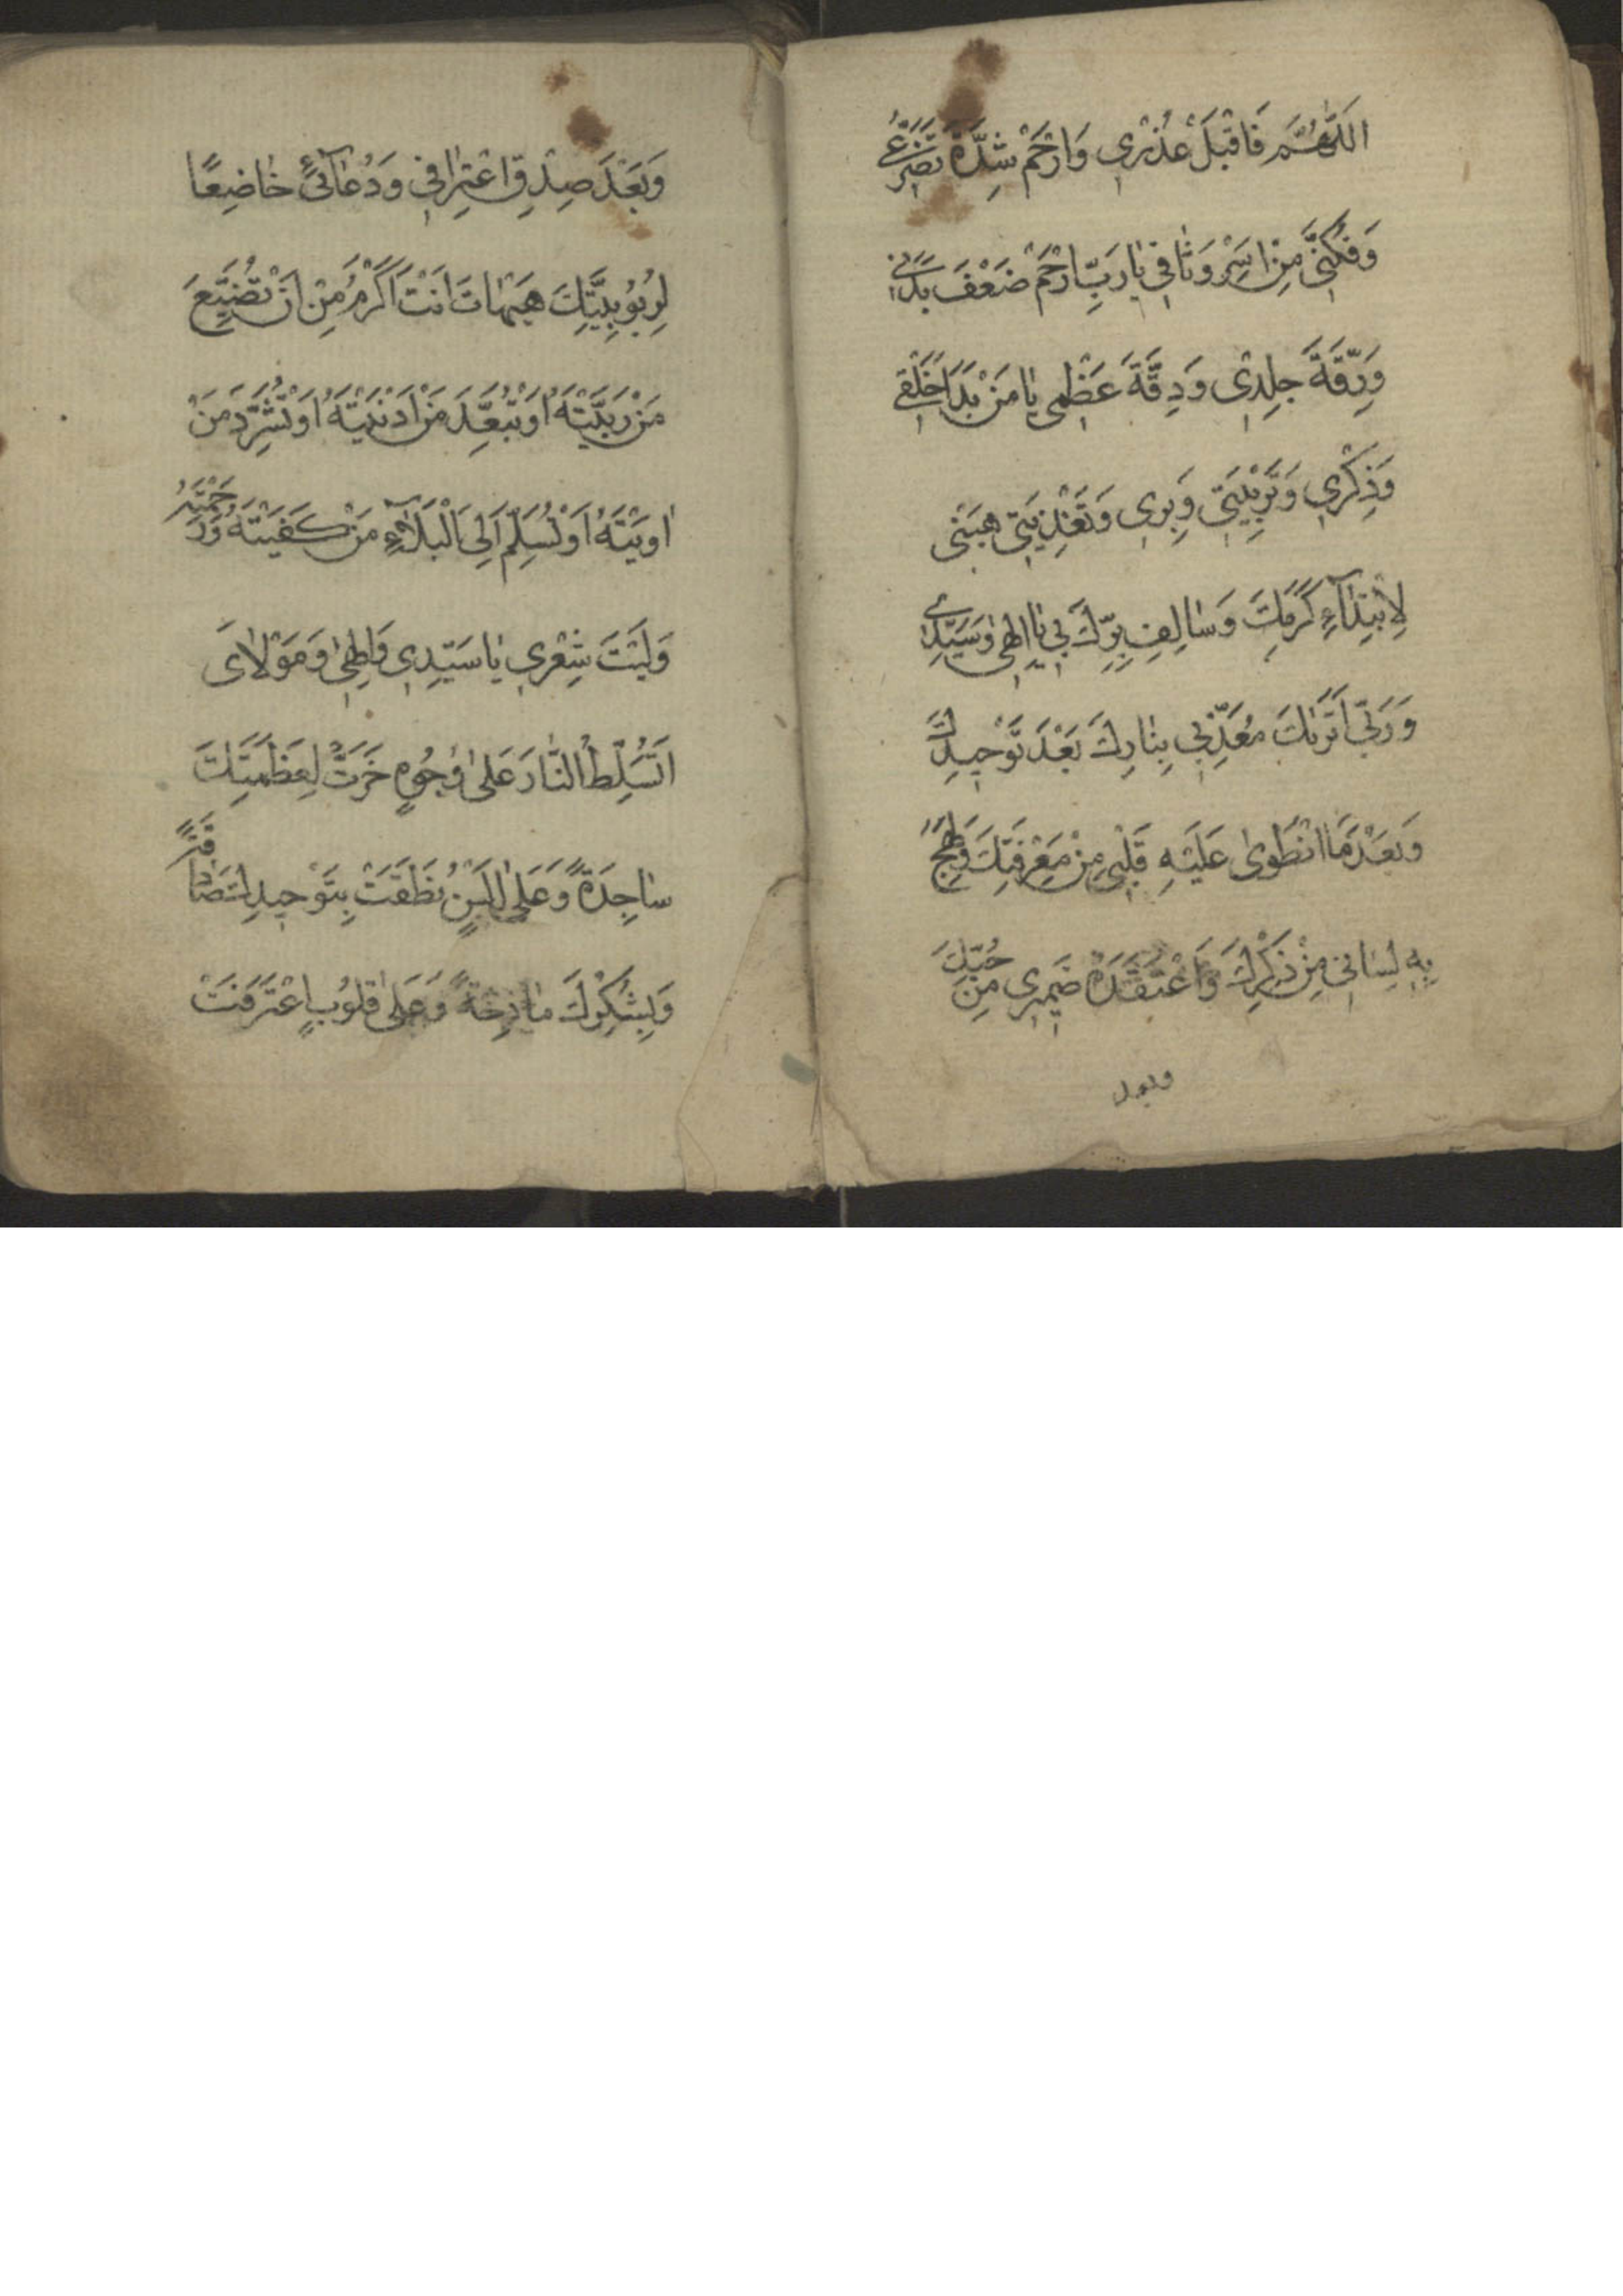 اَللّٰهُمَّ فَاقْبَلْ عُذْرِي وَارْحَمْ شِدَّةَ تَضَرُّعِي
وَفُكَّنِي مِنْ اَسِرْ وَثَاقِي يَا رَبِّ ارْحَمْ ضَعْفَ بَدَنِي
وَرِقَّةَ جِلْدِي وَدِقَّةَ عَظْمِي يَا مَنْ بَدَاَ خَلْقِي
وَذِكْرِي وَتَرْبِيَتِي وَبِرِي وَتَغْذِيَتِي هَبْنِي
لِاِبْتِدَآءِ كَرَمِكَ وَسَالِفِ بِرِّكَ بِي يَا اِلٰهِي وَسَيِّدِي
وَرَبِّي اَتَرٰاكَ مُعَذِّبِي بِنَارِكَ بَعْدَ تَوْحِيدِكَ
وَبَعْدَ مَا انْطَوىٰ عَلَيْهِ قَلْبِي مِنْ مَعْرِفَتِكَ وَلَهِجَ
بِهِ لِسَانِي مِنْ ذِكْرِكَ وَاعْتَقَدَهُ ضَمِيرِي مِنْ حُبِّكَ
وبعد
وَبَعْدَ صِدْقِ اعْتِرَافِي وَدُعَآئِي خَاضِعًا
لِرُبُوبِيَّتِكَ هَيْهَاتَ اَنْتَ اَكْرَمُ مِنْ اَنْ تُضَيِّعَ
مَنْ رَبَّيْتَهُ اَوْ تُبَعِّدَ مَنْ اَدْنَيْتَهُ اَوْ تُشَرِّدَ مَنْ
اٰوَيْتَهُ اَوْ تُسَلِّمَ اِلَى الْبَلَآءِ مَنْ كَفَيْتَهُ وَرَحِمْتَهُ
وَلَيْتَ شِعْرِي يَا سَيِّدِي وَاِلٰهِي وَمَوْلَايَ
اَتُسَلِّطُ النَّارَ عَلىٰ وُجُوهٍ خَرَّتْ لِعَظَمَتِكَ
سَاجِدَةً وَعَلىٰ اَلْسُنٍ نَطَقَتْ بِتَوْحِيدِكَ صَادِقَةً
وَبِشُكْرِكَ مَادِحَةً وَعَلىٰ قُلُوبٍ اعْتَرَفَتْ